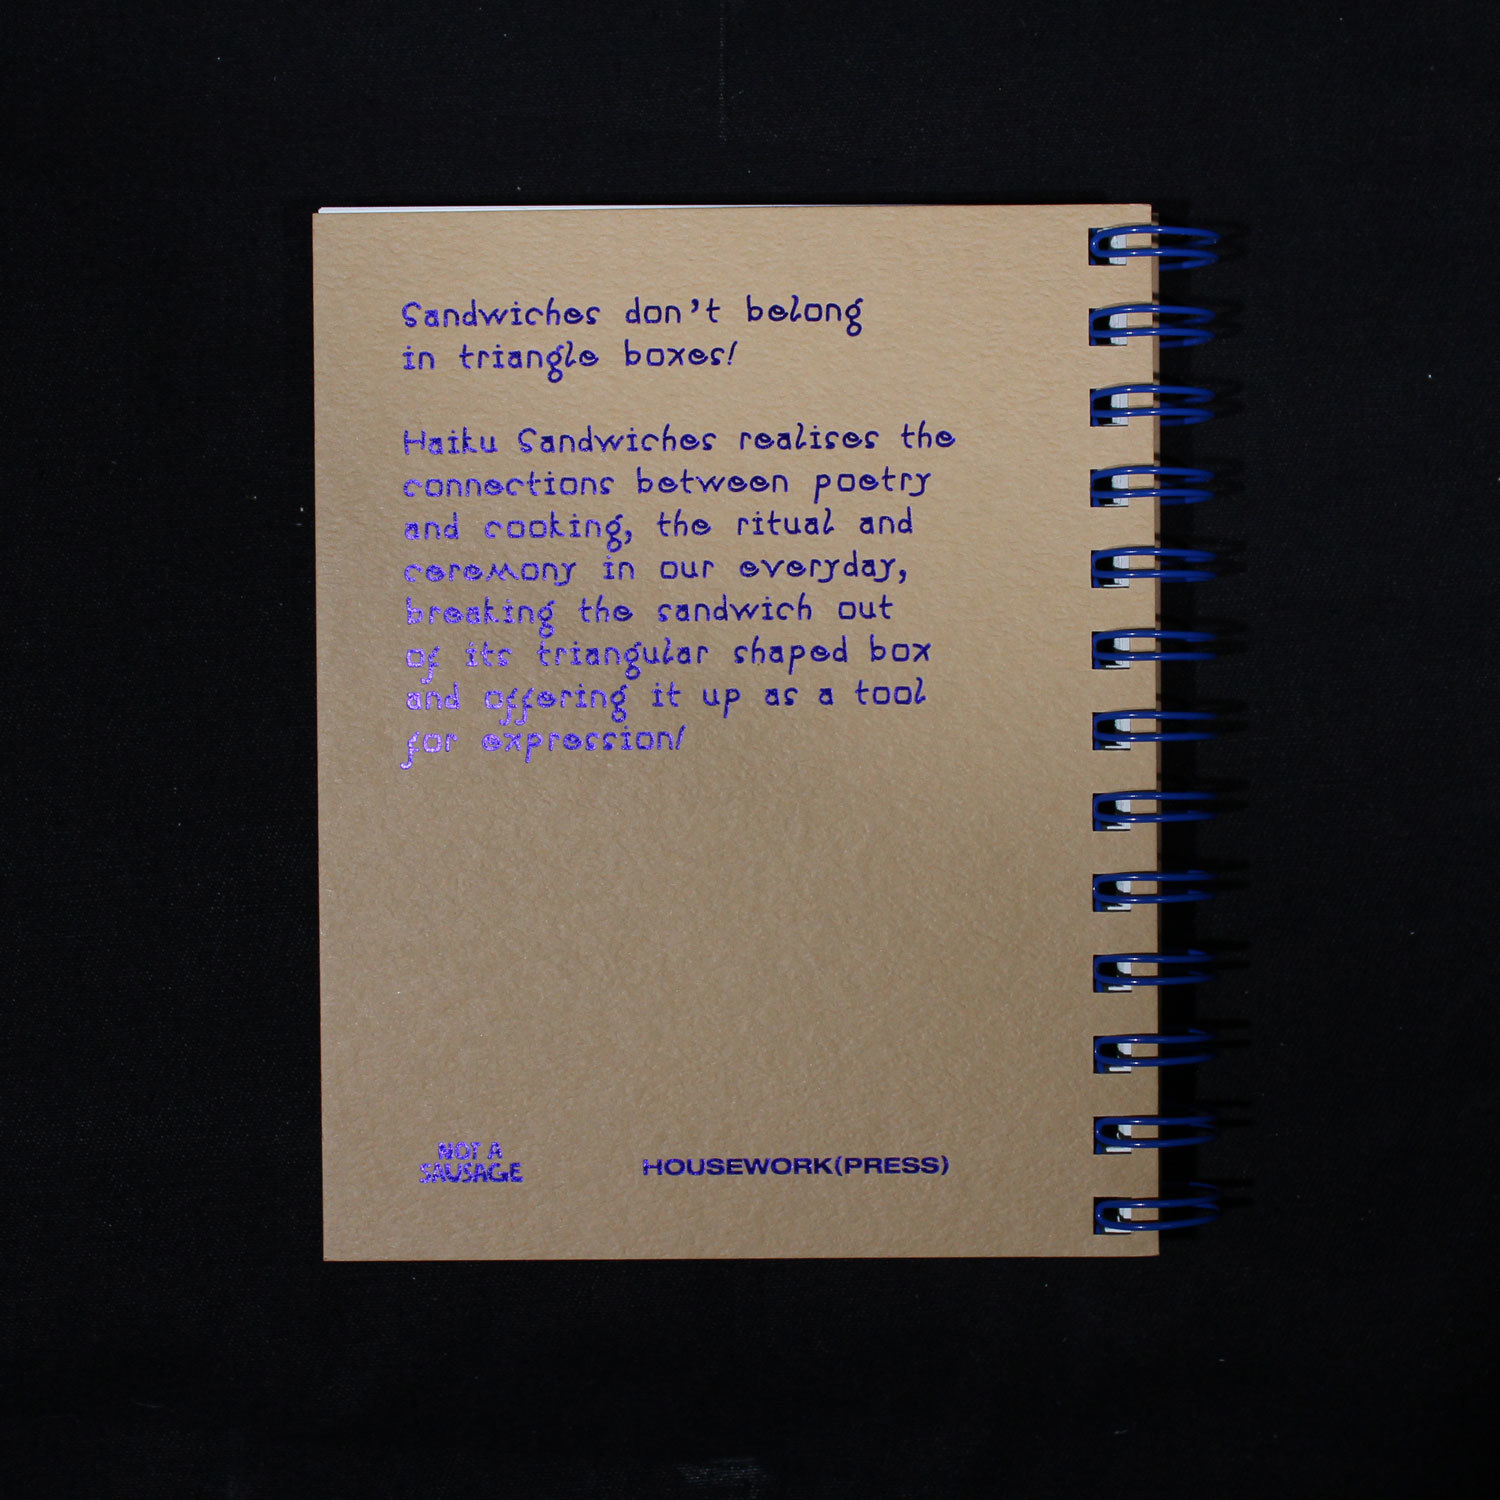 Sandwiches don't belong
in triangle boxes!
Haiku Sandwiches realises the
connections between poetry
and cooking, the ritual and
ceremony in our everyday,
breaking the sandwich out
of its triangular shaped box
and offering it up as a tool
for expression!
NOT A
SAUSAGE
HOUSEWORK(PRESS)